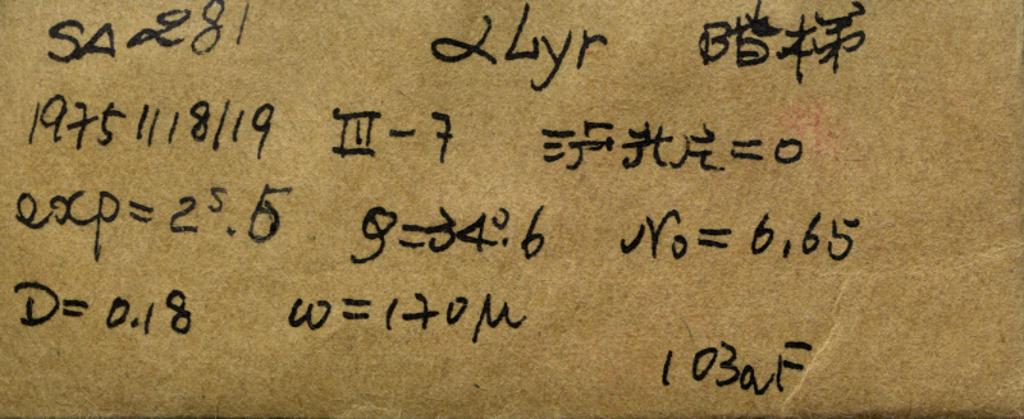 SA281 αLyr 階梯
1975 11 18/19 III-7 滤光片=0
exp=2ˢ.5 g=34°.6 N₀=6.65
D=0.18 ω=170μ
103aF